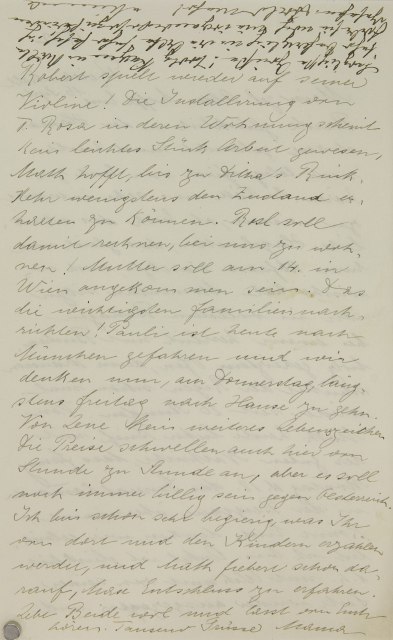 Robert spielt wieder auf seiner
Violine! Die Installirung von
T. Rosa in deren Wohnung scheint
kein leichtes Stück Arbeit gewesen,
Math hofft, bis zu Rück-
kehr wenigstens den Zustand er-
halten zu können. Rosl soll
damit rechnen, bei uns zu woh-
nen! Mutter soll am 14. in
Wien angekommen sein. Das
die wichtigsten Familiennach-
richten! Pauli ist heute nach
München gefahren und wir
denken nun, am Donnerstag läng-
stens freitag nach Hause zu gehn.
Von Lene kein weiteres Lebenszeichen
Die Preise schwellen auch hier von
Stunde zu Stunde an, aber es soll
noch immer billig sein gegen Oesterreich.
Ich bin schon sehr begierig was Ihr
von dort und den Kindern erzählen
werdet, und Math fiebert schon da-
rauf, Entschluss zu erfahren.
Lebt Beide wol und lasst von Euch
hören. Tausend Grüsse Mama